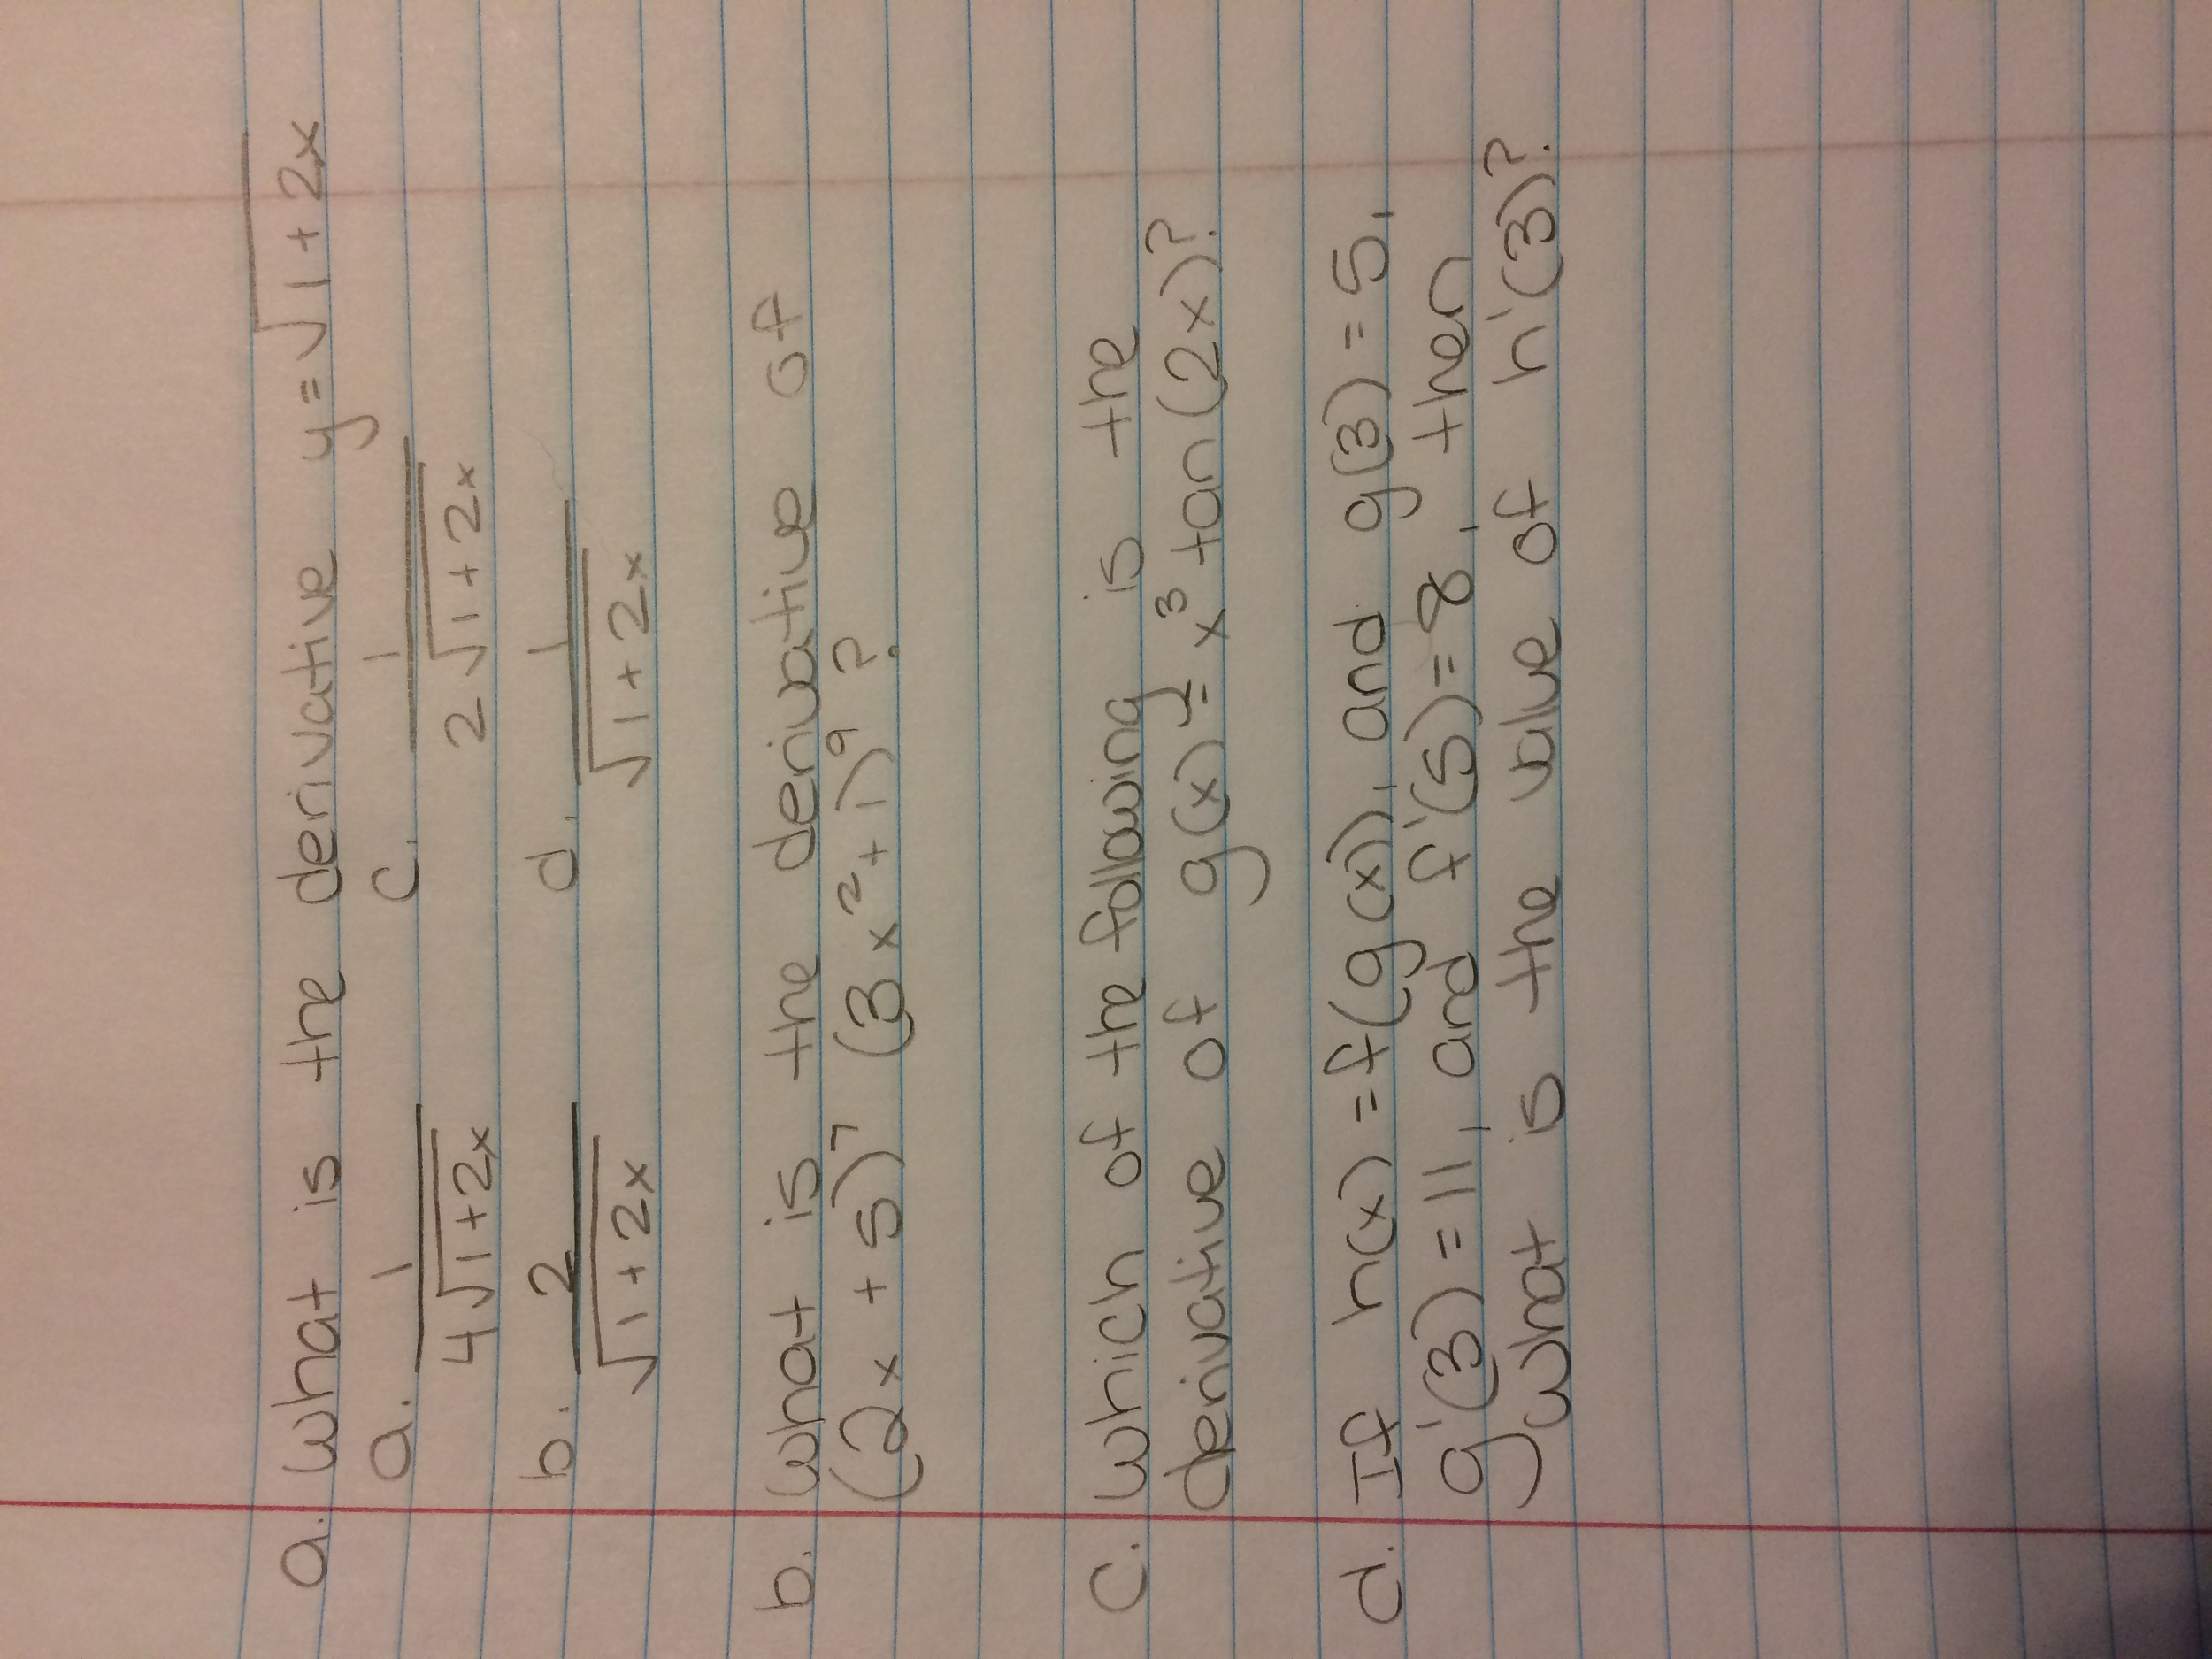 a. What is the derivative y = √1 + 2x
a. 1/4√1+2x c. 1/2√1+2x
b. 2/√1+2x d. 1/√1+2x
b. What is the derivative of
(2x + 5)⁷ (3x² + 1)⁹ ?
c. Which of the following is the
derivative of g(x) = x³ tan(2x)?
d. If h(x) = f(g(x)), and g(3) = 5,
g'(3) = 11, and f'(5) = 8, then
what is the value of h'(3)?